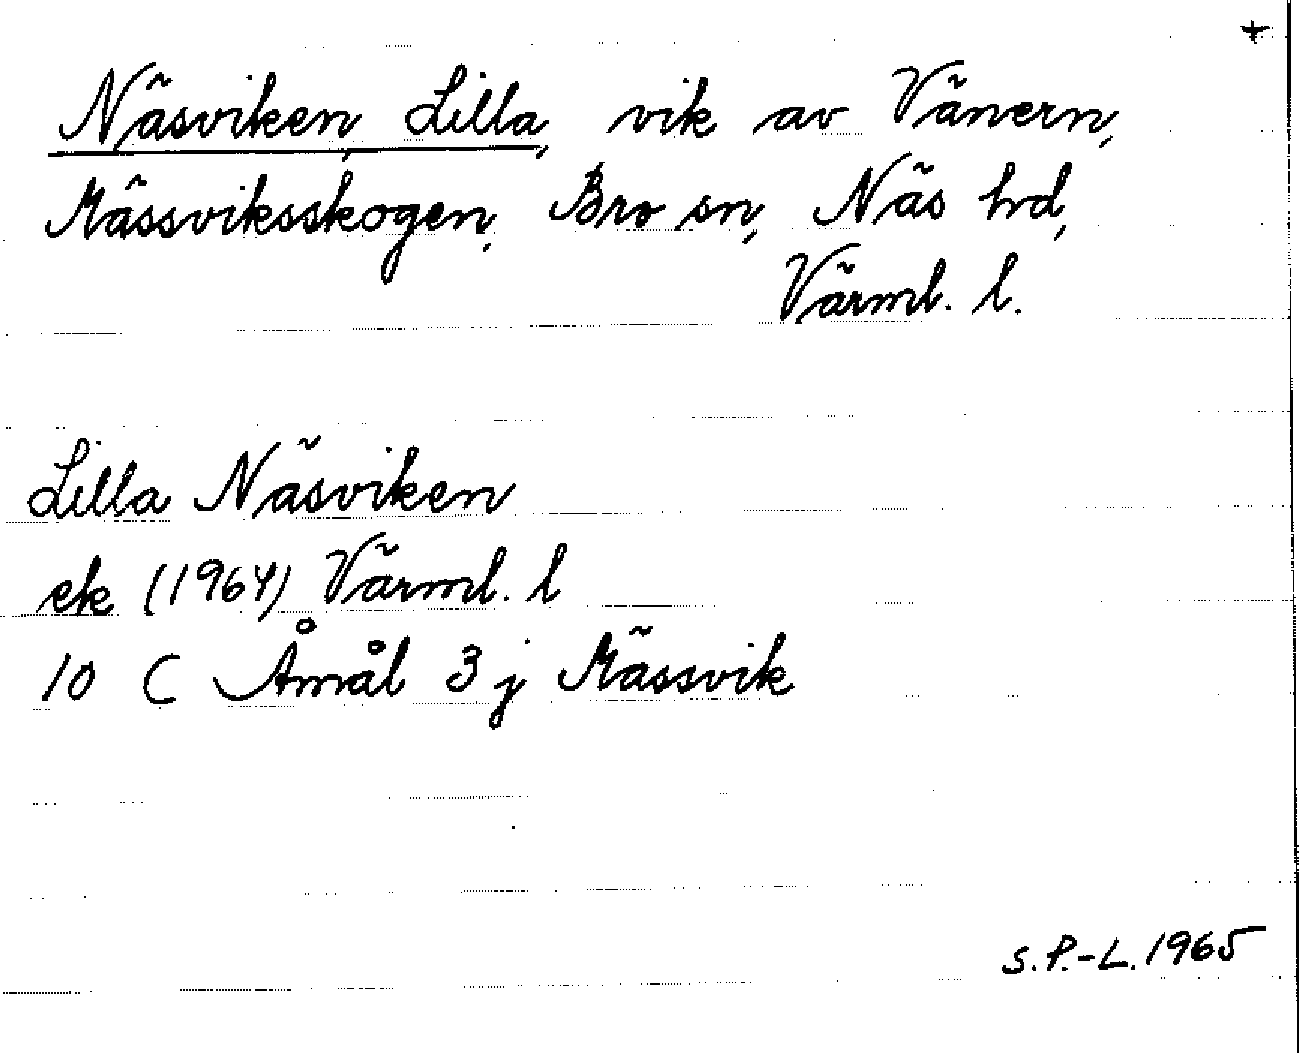 +
Näsviken, Lilla, vik av Vänern,
Mässviksskogen, Bro sn, Näs hd,
Värml. l.
Lilla Näsviken
ek (1964) Värml. l
10 C Åmål 3 j Mässvik
S.P.-L. 1965